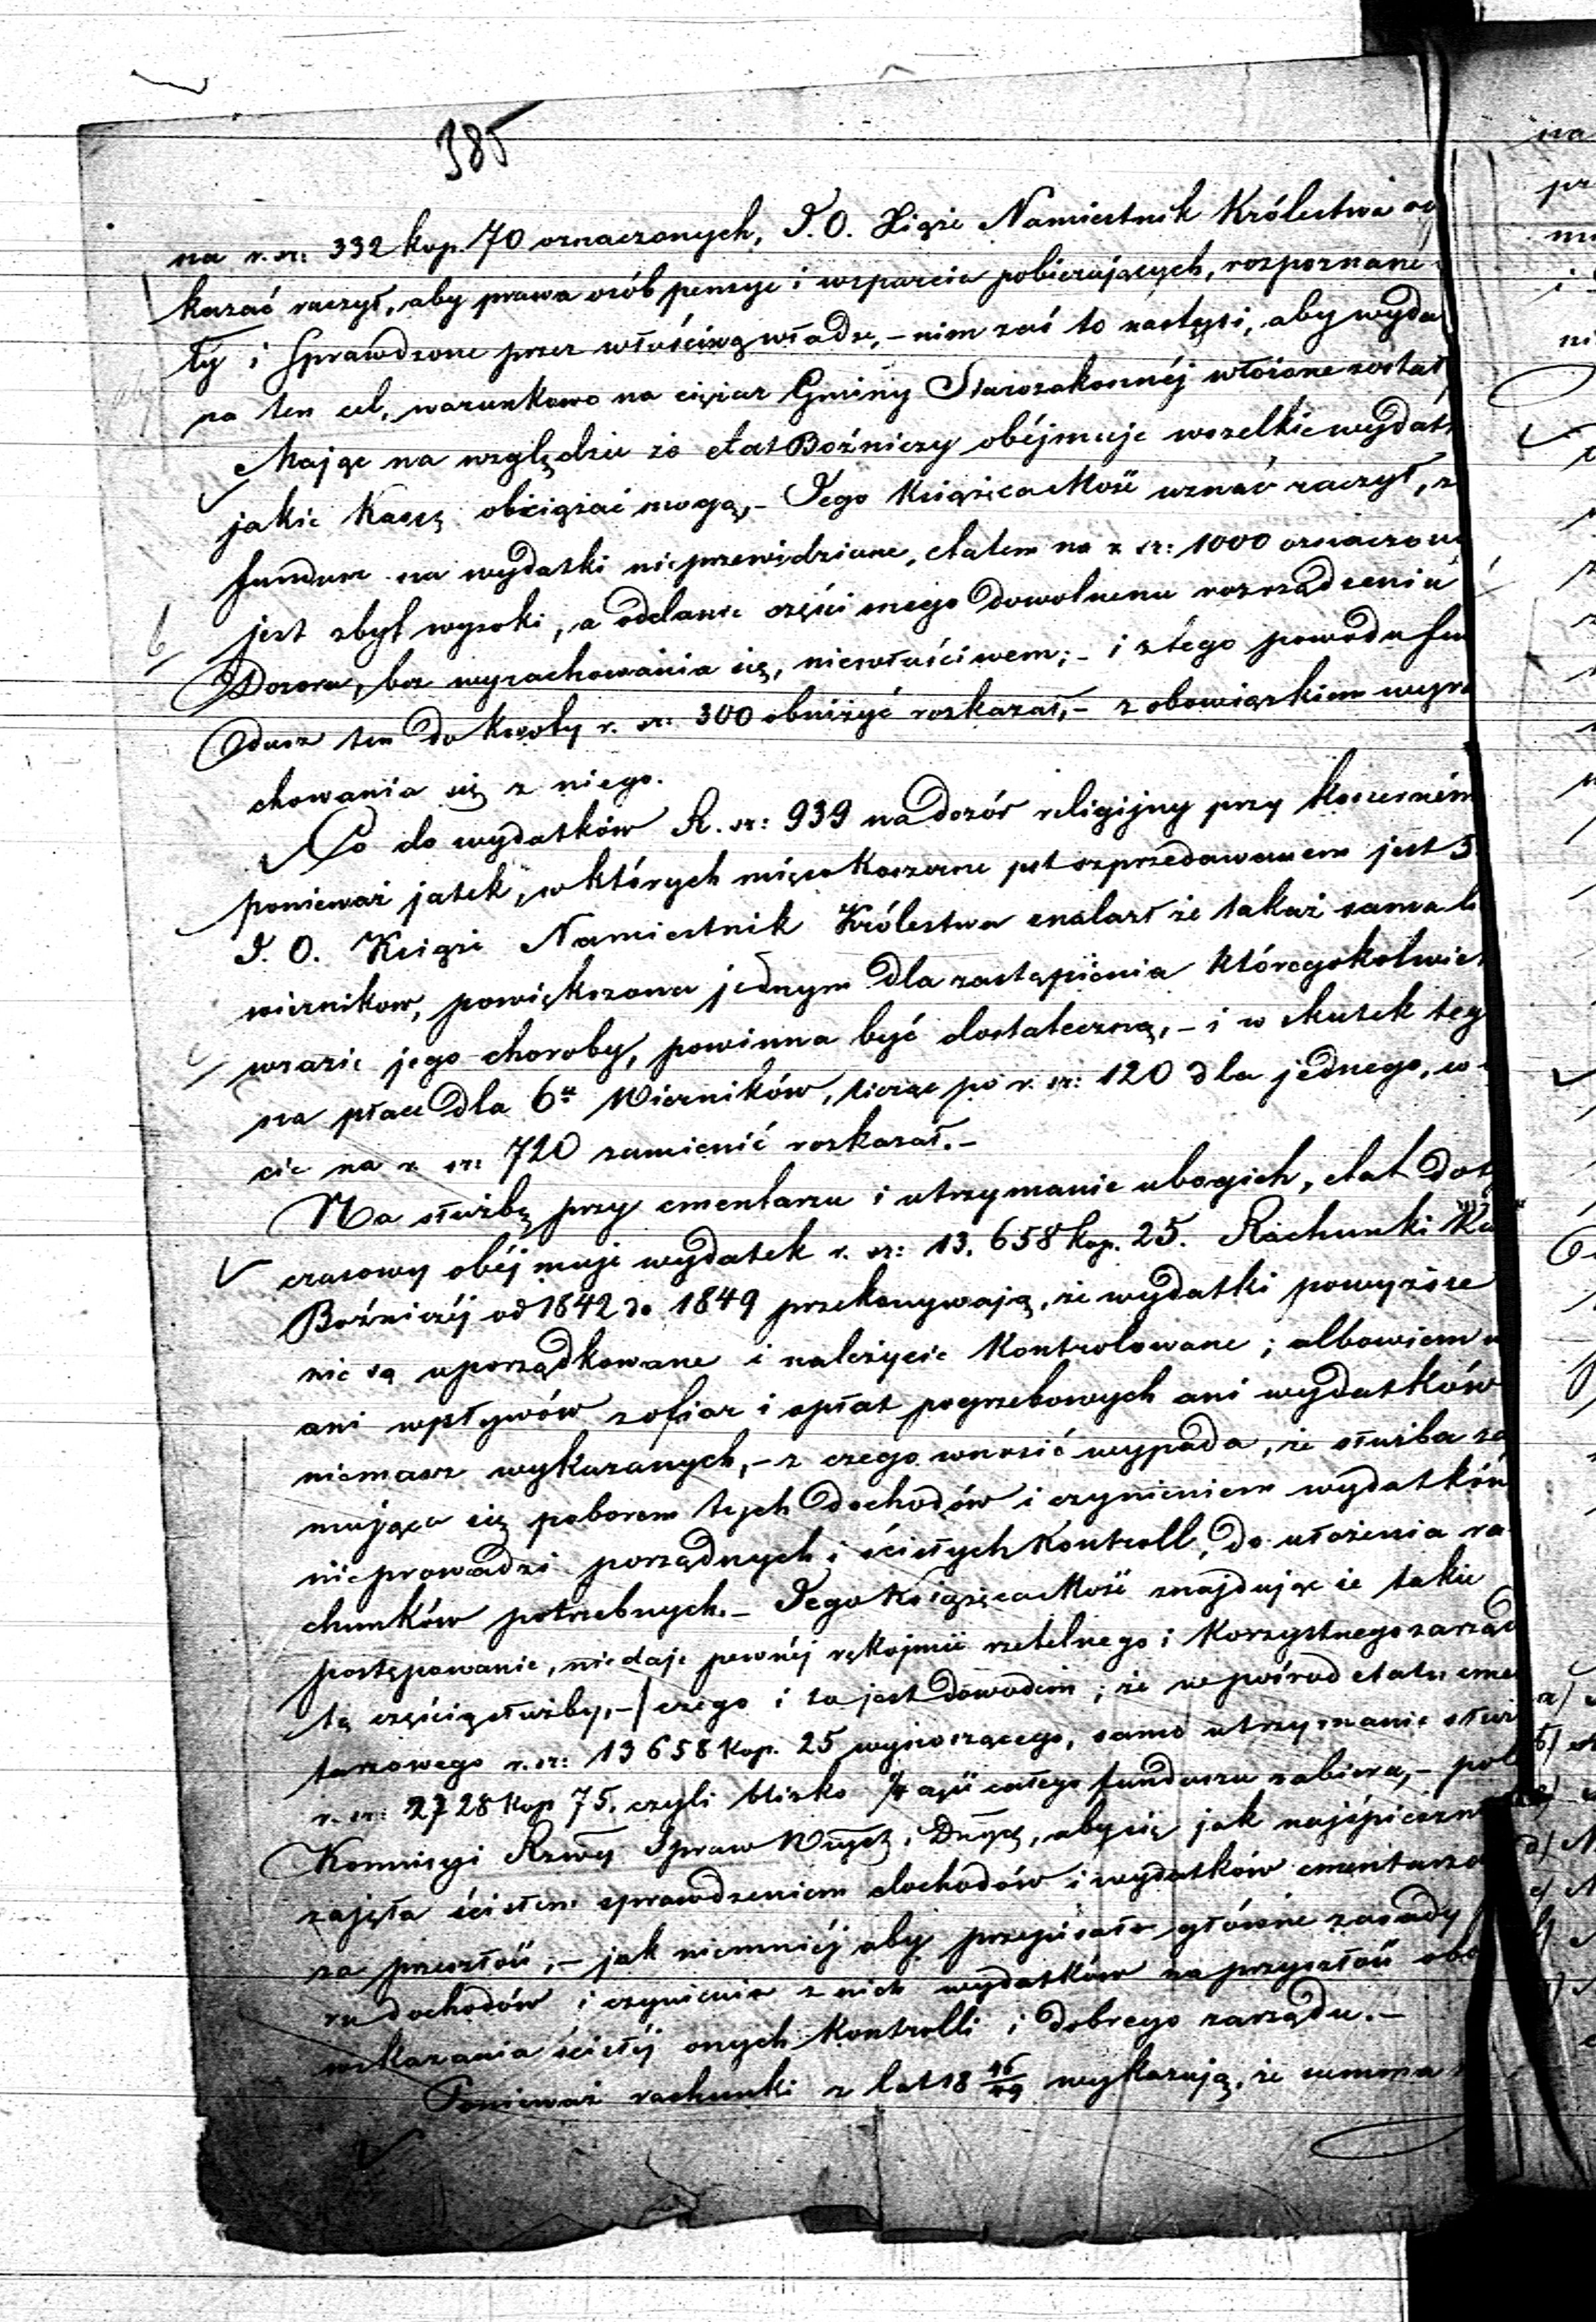 385
na r. sr: 332 kop. 70 oznaczonych, J. O. Xiąże Namiestnik Królestwa
kazać raczył, aby prawa osób pensye i wsparcia pobierających, rozpoznane
ły i sprawdzone przez właściwą władzę, – nim zaś to nastąpi, aby wyda
na ten cel, warunkowo na ciężar Gminy Starozakonnéj włożone został
Mając na względzie że etat Bożniczy obéjmuje wszelkie wydat
jakie Kassę obciążać mogą, – Jego Książęca Mość uznać raczył, ż
fundusz na wydatki nieprzewidziane, etatem na r sr: 1000 oznaczon
jest zbyt wysoki, a oddanie części onego dowolnemu rozrządzeniu
Dozoru, bez wyrachowania się, niewłaściwem; – i z tego powodu fun
dusz ten do kwoty r. sr: 300 obniżyć rozkazał, – z obowiązkiem wyra
chowania się z niego.
Co do wydatków R. sr: 939 na dozór religijny przy koszerném
ponieważ jatek, w których mięso koszerne jest sprzedawanem jest 5
J. O. Książe Namiestnik Królestwa znalazł że takaż sama li
wiernikow, powiększona jednym dla zastąpienia któregokolwiek
w razie jego choroby, powinna być dostateczną, – i w skutek teg
na płace dla 6u Wierników, licząc po r. sr: 120 dla jednego, w
cie na r sr: 720 zamienić rozkazał. –
Na służbę przy cmentarzu i utrzymanie ubogich, etat dot
czasowy obéjmuje wydatek r. sr: 13.658 kop. 25. Rachunki Ka
Bożniczéj od 1842 do 1849 przekonywają, że wydatki powyższe
nie są uporządkowane i należycie kontrolowane; albowiem
ani wpływów z ofiar i opłat pogrzebowych ani wydatków
niemasz wykazanych, – z czego wnosić wypada, że służba za
mująca się poborem tych dochodów i czynieniem wydatków
nieprowadzi porządnych i ścisłych kontroll, do ułożenia ra
chunków potrzebnych. – Jego Książęca Mość znajdując że takie
postępowanie, niedaje pewnéj rękojmii rzetelnego i korzystnego zarząd
tą częścią służby, – czego i to jest dowodem; że w pośród etatu cmen
tarzowego r. sr: 13658 kop. 25 wynoszącego, samo utrzymanie służ
r. sr: 2728 kop 75. czyli blisko 1/4 część całego funduszu zabiera, – pol
Kommisyi Rzwéj Spraw Wnych i Dnych, aby się jak najśpieszn
zajęła ścisłem sprawdzeniem dochodów i wydatków cmentarz
za przeszłość, – jak niemniéj aby przepisała główne zasady
ru dochodów i czynienia z nich wydatków na przyszłość obo
wskazania ścisłéj onych kontrolli i dobrego zarządu. –
Ponieważ rachunki z lat 18 46/49 wykazują, że summa